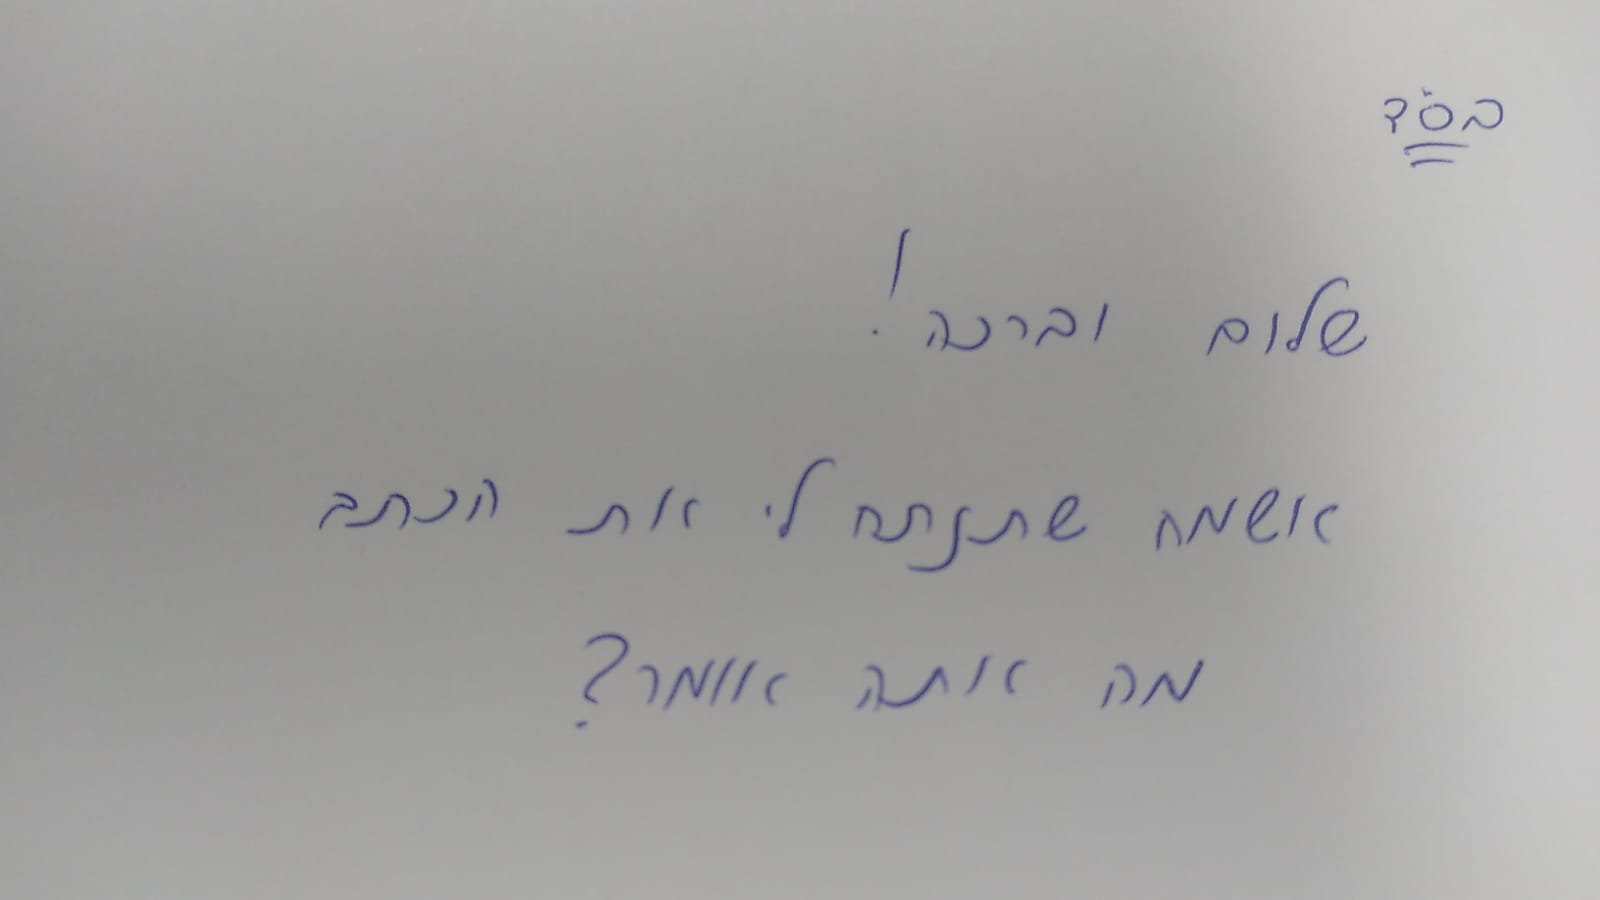 בס"ד
שלום וברכה!
אשמח שתנתח לי את הכתב
מה אתה אומר?